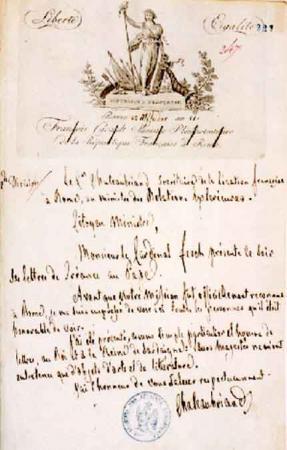 Liberté Egalité
Rome
François Cacault Ministre Plénipotentiaire
de la République Française à Rome.
Le Cen Chateaubriand, Secrétaire de la Légation française
à Rome, au ministre des Relations extérieures.
Citoyen Ministre,
Monsieur le Cardinal fesch présente ce soir
ses lettres de créance au Pape.
Avant que notre mission fut officiellement reconnue
à Rome, je me suis empressé de voir ici toutes les personnes qu'il était
honorable de voir.
J'ai été présenté, comme simple particulier et homme de
lettres, au Roi et à la Reine de Sardaigne. Leurs Majestés ne m'ont
entretenu que d'objets d'arts et de littérature.
J'ai l'honneur de vous saluer respectueusement.
Chateaubriand